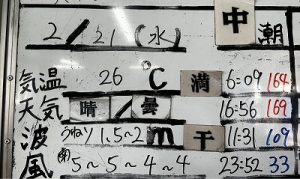 中潮
2/21(水)
気温 26 ℃ 満 6:09 164
天気 晴/曇 16:56 169
波 うねり 1.5~2m 干 11:31 109
風 5~5~4~4 23:52 33